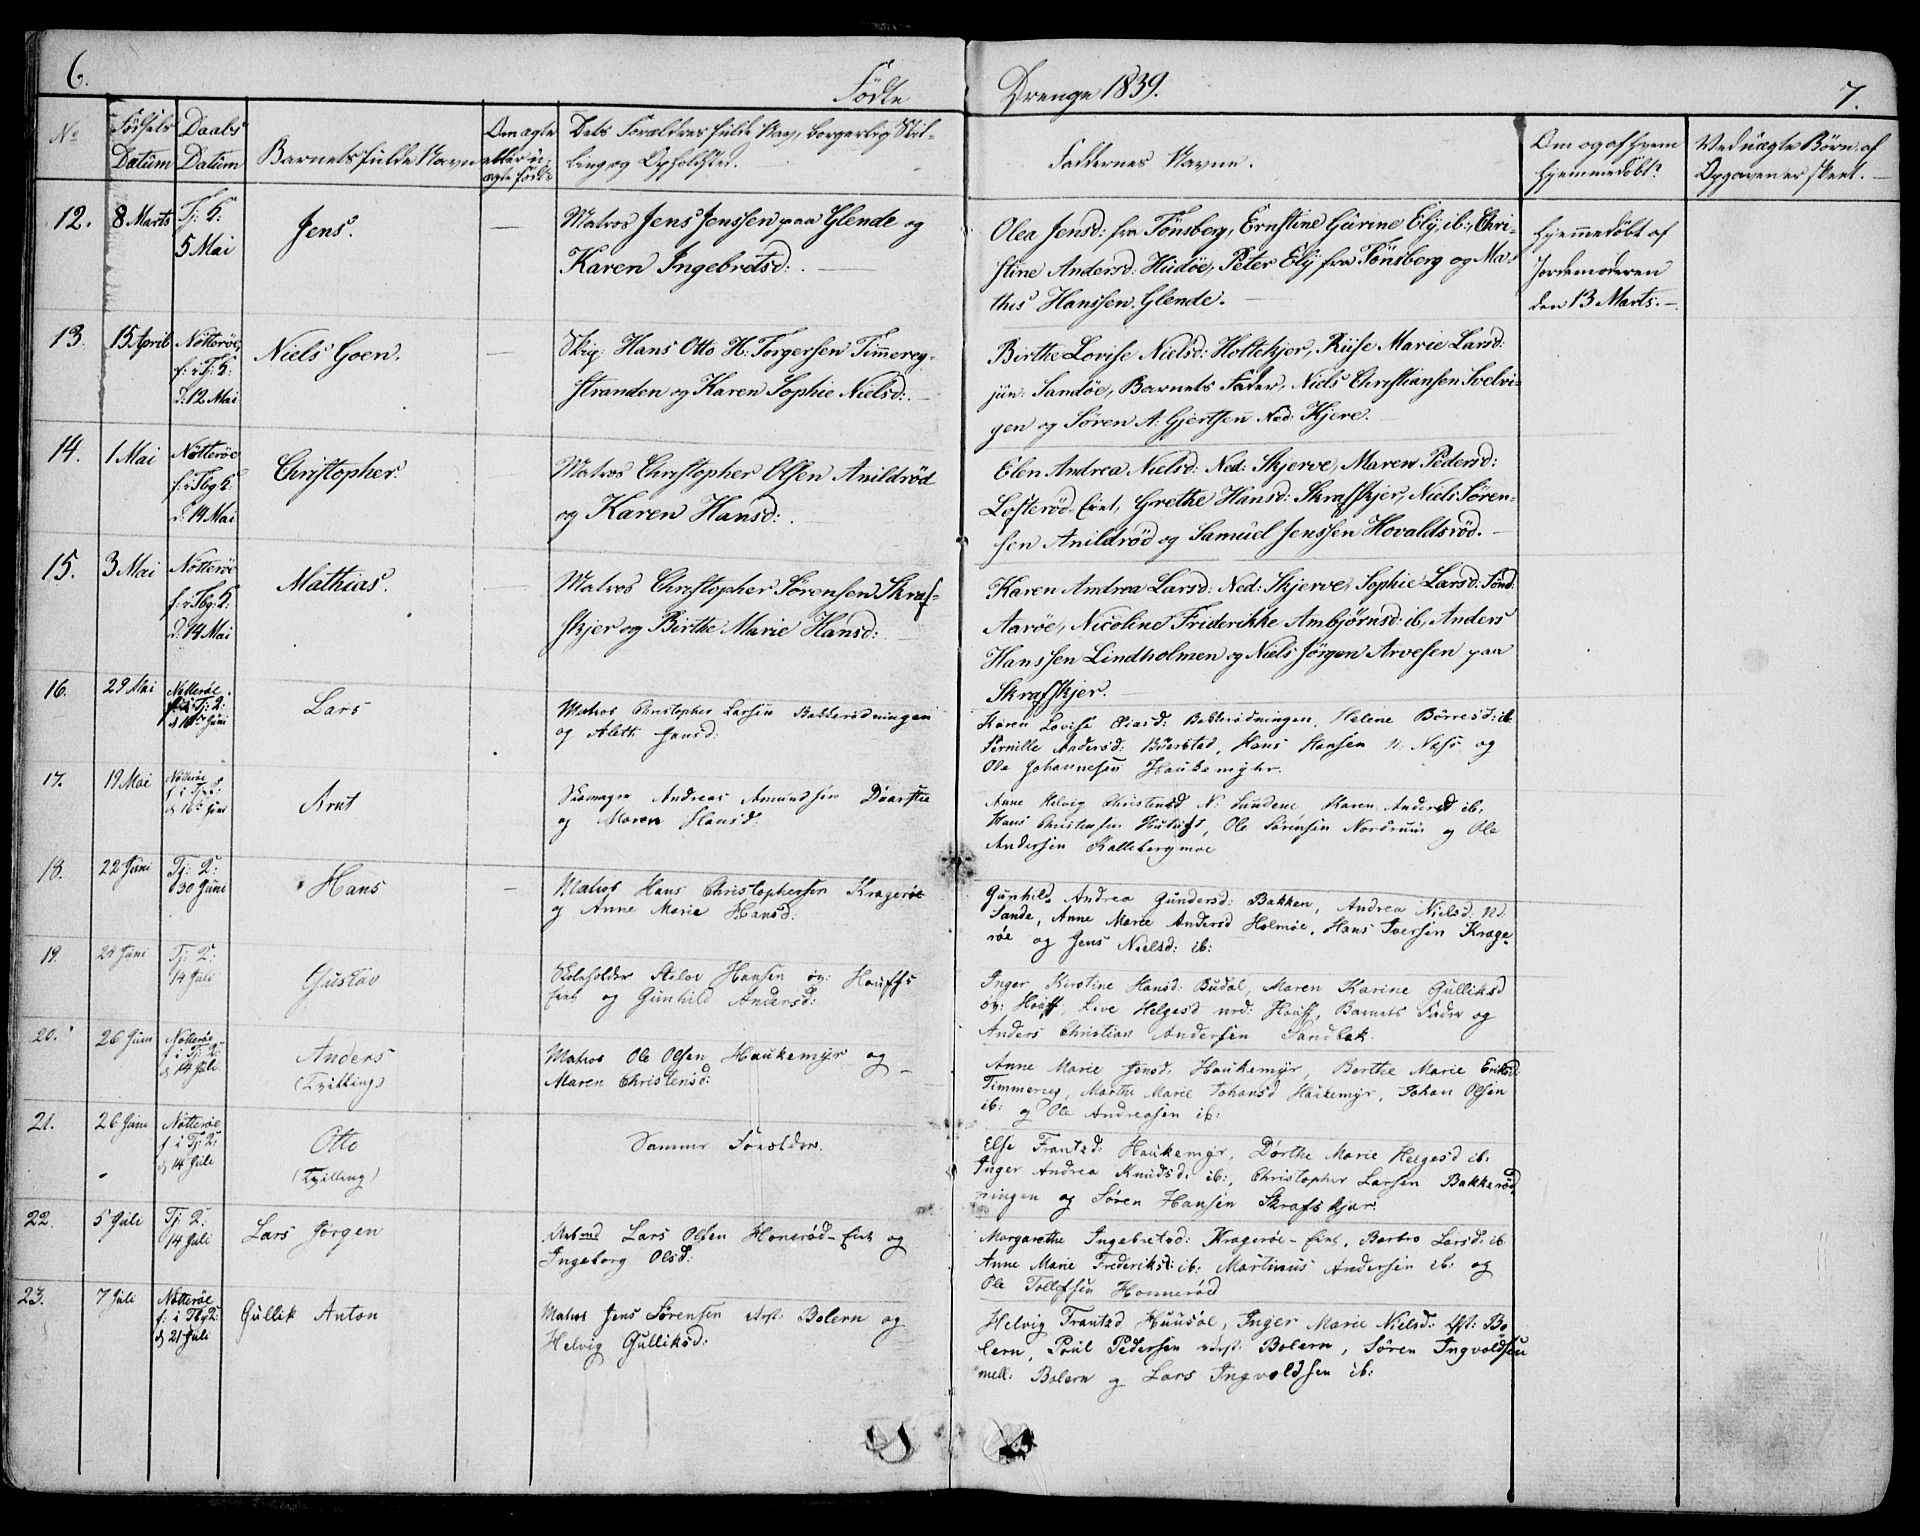 6.
Födte
Drenge 1839.
7.
No
Födsels Datum
Daabs Datum
Barnets fulde Navn
Om ægte eller uægte födt
Dets Forældres fulde Navn, borgerlig Stilling og Opholdsted.
Faddernes Navne.
Om og af hvem hjemmedöbt?
Ved uægte Börn af Opgaven er skeet.
12.
8 Marts
Tj: K:
5 Mai
Jens.
Matros Jens Jenssen paa Glende og
Karen Ingebretsd:
Olea Jensd: fra Tönsberg, Ernstine Gurine Ely, ib:, Chri-
stine Andersd: Hudöe, Peter Ely fra Tönsberg og Ma-
this Hanssen Glende.
Hjemmedöbt af
Jordemoderen
den 13 Marts.
13.
15 April
Nötteröe,
f: i Tj: K:
d: 12 Mai
Niels Goen.
Skip: Hans Otto H: Torgersen Timmereg-
stranden og Karen Sophie Nielsd:
Birthe Lovise Nielsd: Holtekjer, Riise Marie Larsd:
jun: Sandöe, Barnets Fader, Niels Christiansen Svelvi-
gen og Sören A: Gjertsen Ned: Kjere.
14.
1 Mai
Nötteröe
f: i Tbg K:
d: 14 Mai
Christopher.
Matros Christopher Olsen Anildröd
og Karen Hansd:
Elen Andrea Nielsd: Ned: Skjerve, Maren Pedersd:
Lofteröd-Eiet, Grethe Hansd: Skrafskjer, Niels Sören-
sen Anildröd og Samuel Jenssen Hovaldsröd.
15.
3 Mai
Nötteröe
f: i Tbg: K:
d: 14 Mai
Mathias.
Matros Christopher Sörensen Skraf-
skjer og Birthe Marie Hansd:
Karen Andrea Larsd: Ned: Skjerve, Sophie Larsd: Sönd:
Aaröe, Nicoline Friderikke Ambjörnsd: ib, Anders
Hanssen Lindholmen og Niels Jörgen Arvesen paa
Skrafskjer.
16.
29 Mai
Nötteröe
f: i Tj: K:
d 16 Juni
Lars
Matros Christopher Larsen Bakkerödningen
og Aleth Jensd:
Karen Lovise Eliasd: Bakkerödningen, Helene Börresd: ib
Pernille Andersd: Buerstad, Hans Hansen N: Næss og
Ole Johannesen Haukemyhr.
17.
19 Mai
Nötteröe
f i Tj K:
d 16 Juni
Arnt
Skomager Andreas Amundsen
og Maren Hansd:
Anne Helvig Christensd N: Lundene, Karen Andersd ib,
Hans Christensen, Ole Sörensen Nordrum og Ole
Andersen Kallebergmoe
18.
22 Juni
Tj: K:
30 Juni
Hans
Matros Hans Christophersen Krageröe
og Anne Marie Hansd:
Gunhild Andrea Gundersd: Bakken, Andrea Nielsd: Nd:
Sande, Anne Marie Andersd Holmöe, Hans Iversen Krage-
röe og Jens Nielsd: ib:
19.
24 Juni
Tj: K:
14 Juli
Gustav
Skoleholder Hansen öv: Houffs
Eiet og Gunhild Andersd:
Inger Kirstine Hansd: Budal, Maren Karine Gulliksd
öv: Houff, Live Helgesd ned: Houff, Barnets Fader og
Anders Christian Andersen Sandbek.
20.
26 Juni
Nötteröe
f i Tj: K:
d 14 Juli
Anders
(Tvilling)
Matros Ole Olsen Haukemyr og
Maren Christensd:
Anne Marie Jensd: Haukemyr, Berthe Marie Eriksd:
Timmereg, Marthe Marie Johansd Haukemyr, Johan Olsen
ib: og Ole Andreasen ib:
21.
26 Juni
Nötteröe
f i Tj: K:
d 14 Juli
Otto
(Tvilling)
Samme Forældre.
Else Frantzd: Haukemyr, Dorthe Marie Helgesd ib,
Inger Andrea Knudsd: ib:, Christopher Larsen Bakkeröd-
ningen og Sören Hansen Skrafskjær.
22.
5 Juli
Tj: K:
14 Juli
Lars Jörgen
Lars Olsen Honeröd-Eiet og
Ingeborg Olsd:
Margarethe Ingebretsd: Krageröe-Eiet, Barbro Larsd: ib
Anne Marie Frederiksd: ib: Martinus Andersen ib: og
Ole Tollefsen Honneröd
23.
7 Juli
Nötteröe
f: i Tbg K:
d 21 Juli
Gullik Anton
Matros Jens Sörensen Bolern og
Helvig Gulliksd:
Helvig Frantzd Huusöe, Inger Marie Nielsd: Bo-
lern, Poul Pedersen Bolern, Sören Ingvoldsen
mell: Bolern og Lars Ingvoldsen ib: